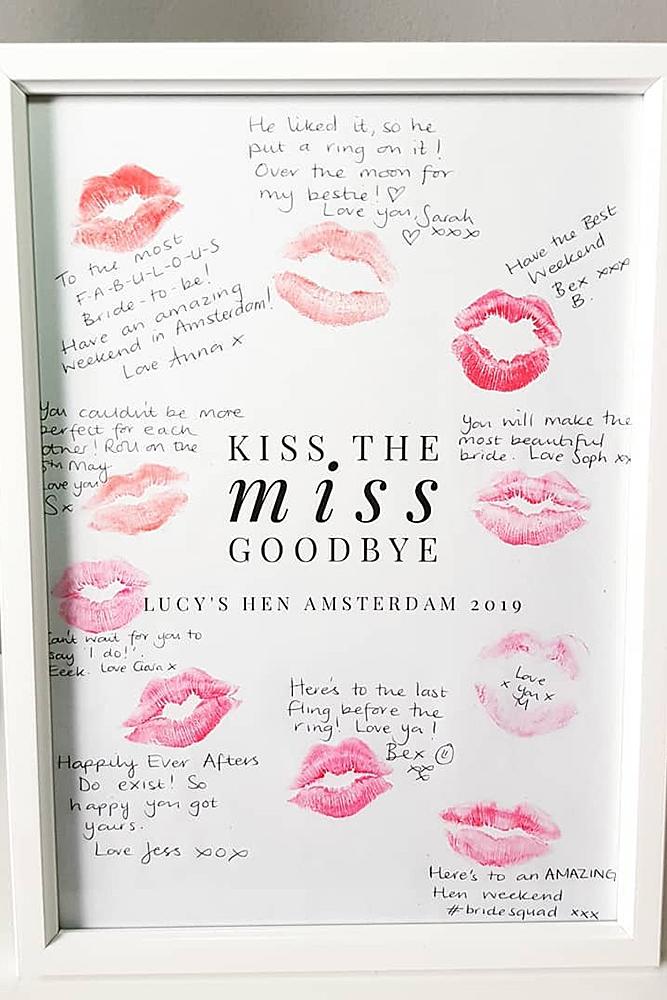 He liked it, so he
put a ring on it!
Over the moon for
my bestie! ♡
Love you, Sarah
♡ xxx
To the most
F-A-B-U-L-O-U-S
Bride-to-be!
Have an amazing
weekend in Amsterdam!
Love Anna x
Have the Best
Weekend
Bex xxx
B.
You couldn't be more
perfect for each
other! Roll on the
5th May
Love you
Sx
You will make the
most beautiful
bride. Love Soph xx
KISS THE
miss
GOODBYE
LUCY'S HEN AMSTERDAM 2019
Can't wait for you to
say 'I do!'.
Eeek. Love Ciara x
Love
x You x
M
Here's to the last
fling before the
ring! Love ya!
Bex
xx
x
Happily Ever Afters
Do exist! So
happy you got
yours.
Love Jess xoxo
Here's to an AMAZING
Hen weekend
#bridesquad xxx